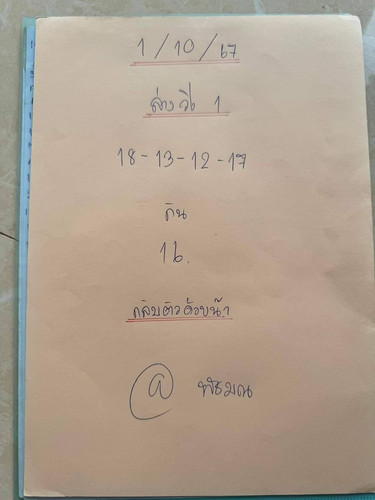 1/10/67
ล่าง วิ่ง 1
18-13-12-17
กลับตัวด้วยน๊ะ
@ พัธมณ